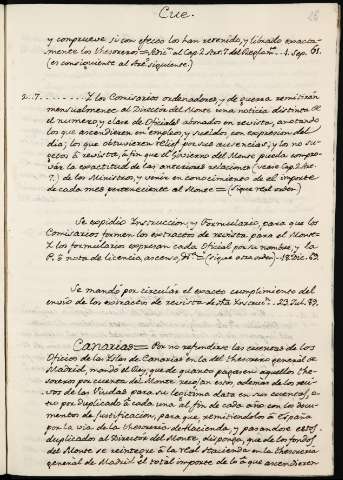 Cue.
26
y comprueve si con efecto los han retenido, y librado exacta-
mente los thesoreros = Adicⁿ al Cap. 2 Art. 7 del Reglamᵗᵒ .. 1. Sep. 61.
(es consiguiente al Artº siguiente.)
2..7........ Y los Comisarios ordenadores, y de guerra remitirán
mensualmente al Director del Monte una noticia distinta de
el numero, y clase de Oficiales abonados en revista, anotando
los que ascendieren en empleos, y sueldos con expresion del
dia; los que obtuvieren relief por sus ausencias; y los no su-
getos á revista, á fin que el Govierno del Monte pueda compro-
bar la exactitud de las anteriores relaciones (vease Cap. 2 Art.
7.) de los Ministros, y venir en conocimiento de el importe
de cada mes perteneciente al Monte = (sigue real orden)
Se expidió Instruccion, y Formulario, para que los
Comisarios formen los extractos de revista para el Monte
Y los formularios expresan cada Oficial por su nombre, y la
P. ó nota de licencia, ascenso, &ª = (sigue otra orden) - 18 Dic. 69.
Se mandó por circular el exacto cumplimiento del
envio de los extractos de revista de esta Instrucⁿ .. 23 Jul. 89.
Canarias = Por no refundirse las cuentas de los
Oficios de las Islas de Canarias en la del thesorero general de
Madrid, mandó el Rey, que de quanto paguen aquellos the-
soreros por cuenta del Monte recojan esos, ademas de los reci-
vos de las Viudas para su legitima data en sus cuentas, o-
tro por duplicado á cada una al fin de cada año con los docu-
mentos de justificacion, para que remitiendolos á España
por la via de la thesoreria de Hacienda, y pasandose estos
duplicados al Director del Monte, disponga, que de los fondos
del Monte se reintegre á la real Hacienda en la thesoreria
general de Madrid el total importe de lo á que ascendieren